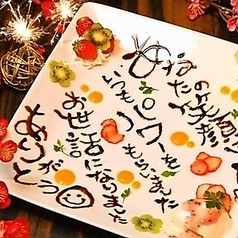 あなたの笑顔に
いつもパワーを
もらいました
お世話になりました
ありがとう